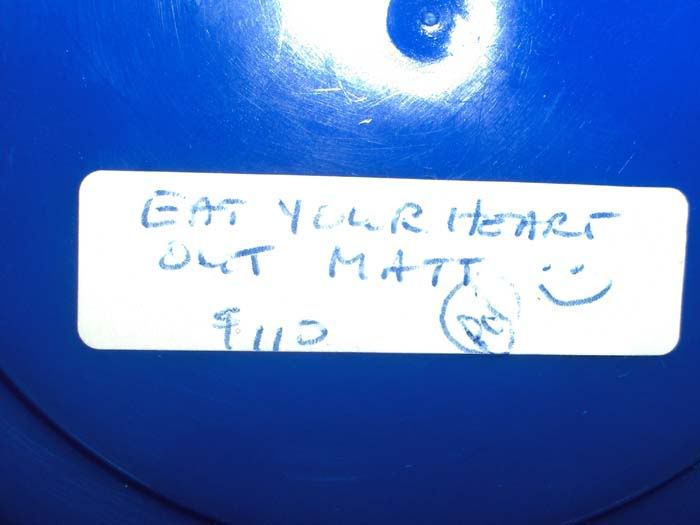 EAT YOUR HEART
OUT MATT
$110